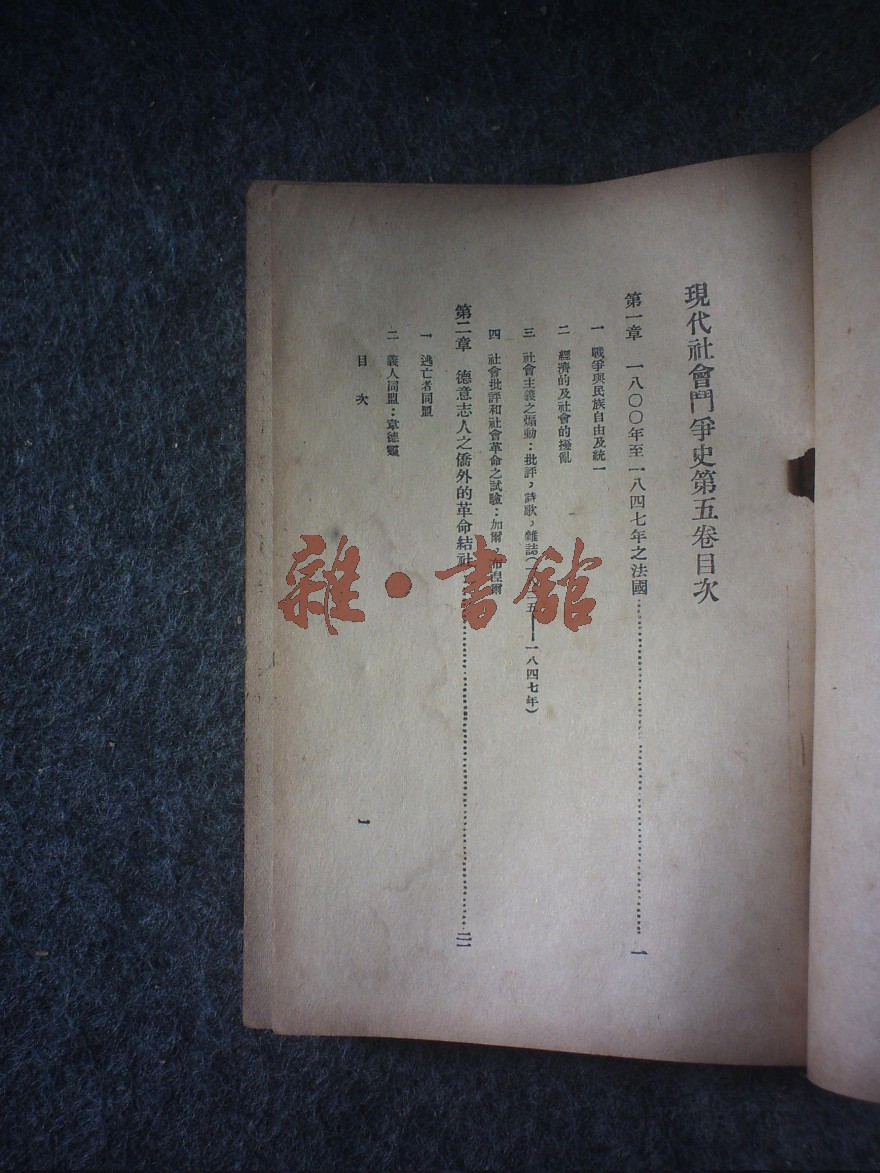 現代社會鬥爭史第五卷目次
第一章 一八〇〇年至一八四七年之法國……一
一 戰爭與民族自由及統一
二 經濟的及社會的擾亂
三 社會主義之煽動：批評，詩歌，雜誌（一 五——一八四七年）
四 社會批評和社會革命之試驗：加爾，布涅爾
第二章 德意志人之僑外的革命結社……二一
一 逃亡者同盟
二 義人同盟：韋德靈
目次
一
雜·書館